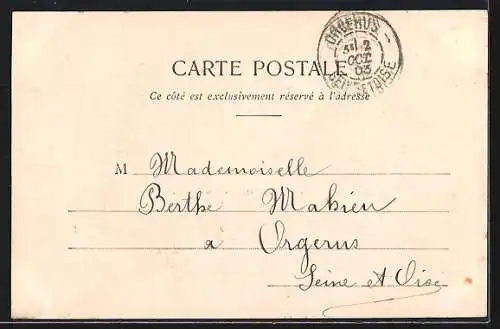 ORGERUS
2
OCT
03
SEINE-ET-OISE
CARTE POSTALE
Ce côté est exclusivement réservé à l'adresse
M Mademoiselle
Berthe Mahieu
à Orgerus
Seine et Oise